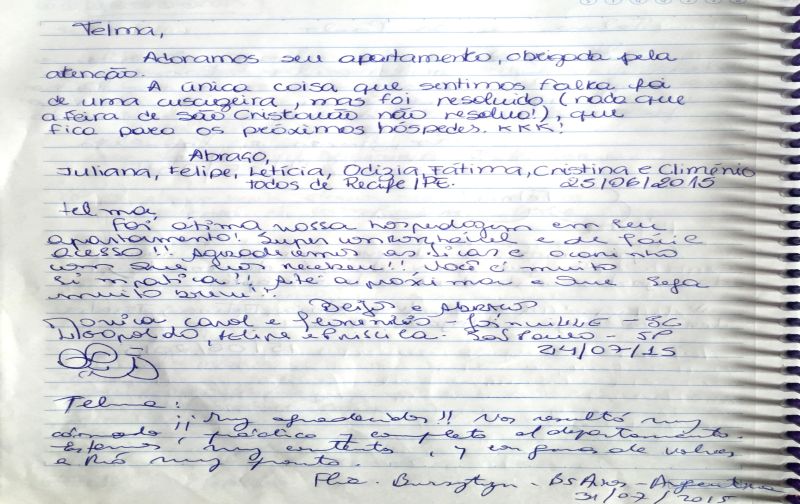 Telma,
Adoramos seu apartamento, obrigada pela
atenção.
A única coisa que sentimos falta foi
de uma cuscuzeira, mas foi resolvido (nada que
a feira de São Cristovão não resolva!), que
fica para os próximos hóspedes. KKK!
Abraço,
Juliana, Felipe, Letícia, Odizia, Fátima, Cristina e Climênio
todos de Recife/PE. 25/06/2015
Telma,
Foi ótima nossa hospedagem em seu
apartamento! Super confortável e de fácil
acesso!! Agradecemos as dicas e o carinho
com que nos recebeu!! Você é muito
simpática!! Até a próxima e que seja
muito breve!!
Beijos e Abraços
carol e - Joinville - SC
Leopoldo, Felipe e Priscila - São Paulo - SP
24/07/15
Telma:
¡¡ Muy agradecidos!! Nos resultó muy
cómodo, práctico y completo el departamento.
Estamos muy contentos, y con ganas de volver
a Río muy pronto.
Flia. Bursztyn - Bs Aires - Argentina
31/07/2015